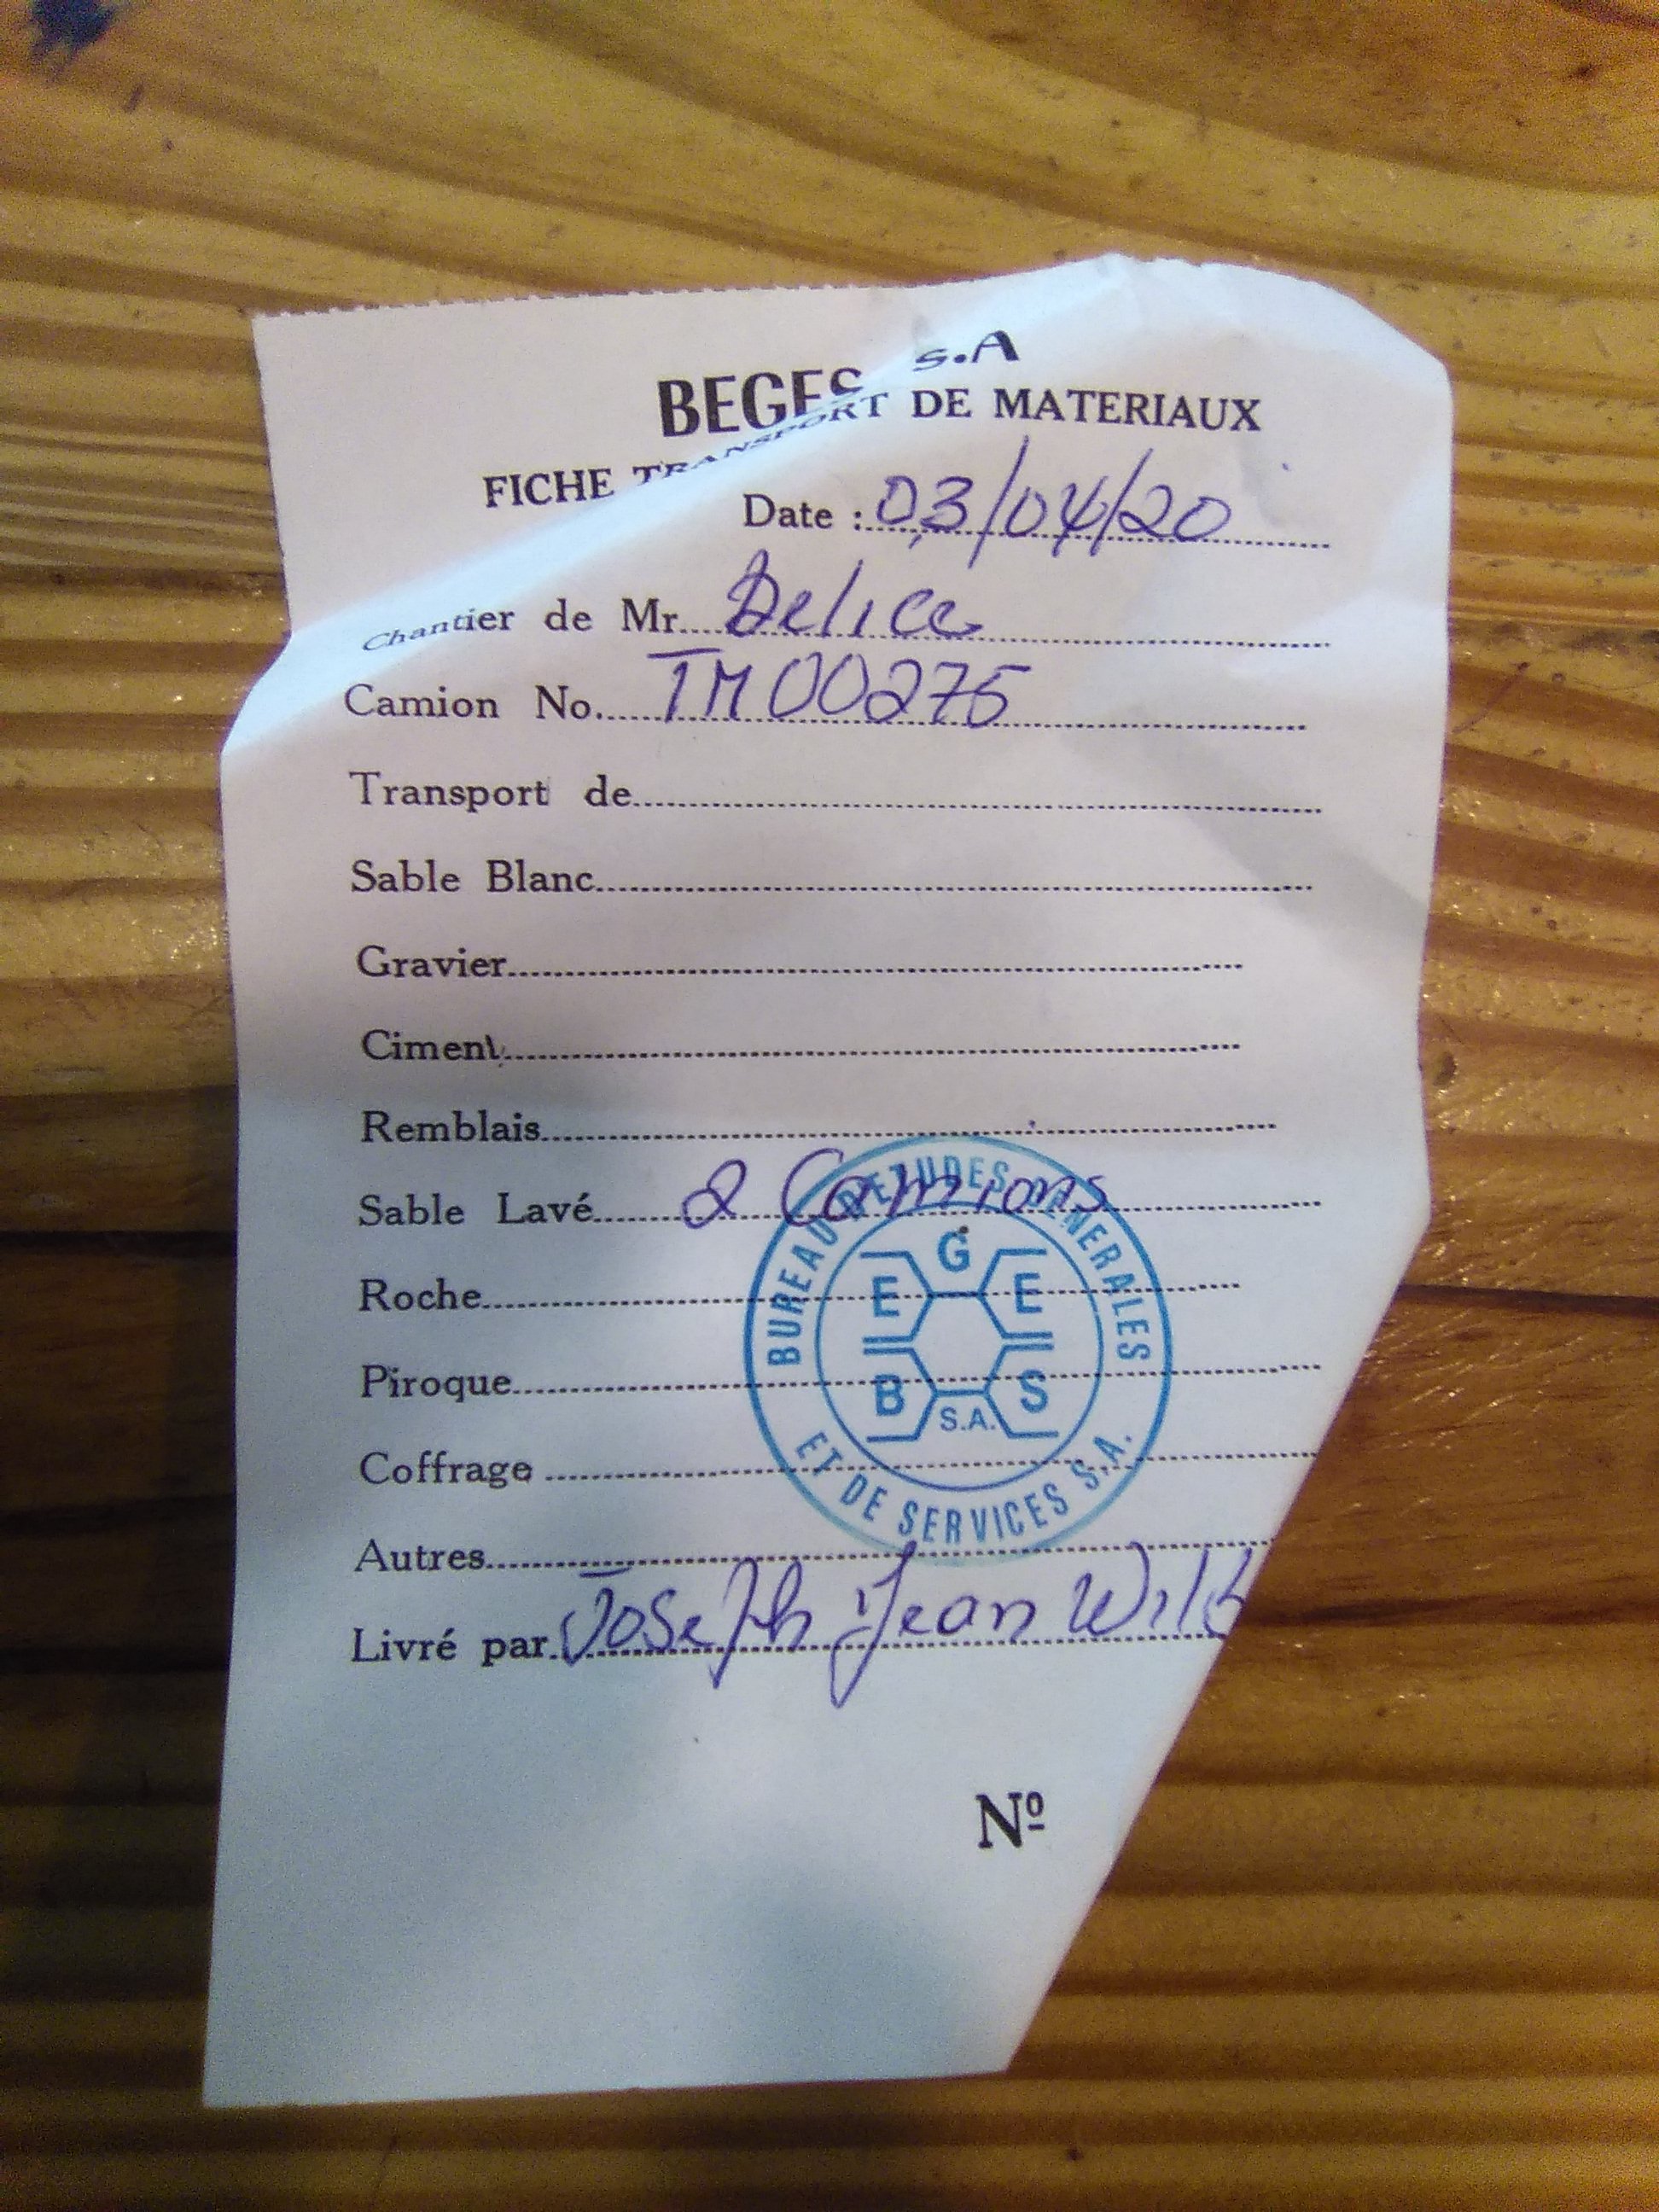 BEGES S.A
FICHE TRANSPORT DE MATERIAUX
Date : 03/04/20
Chantier de Mr. Delice
Camion No. TM00275
Transport de
Sable Blanc
Gravier
Ciment
Remblais
Sable Lavé 2 Camions
Roche
Piroque
Coffrage
Autres
Livré par Joseph Jean
BUREAU D'ETUDES GENERALES
ET DE SERVICES S.A.
B E G E S
S.A.
Nº